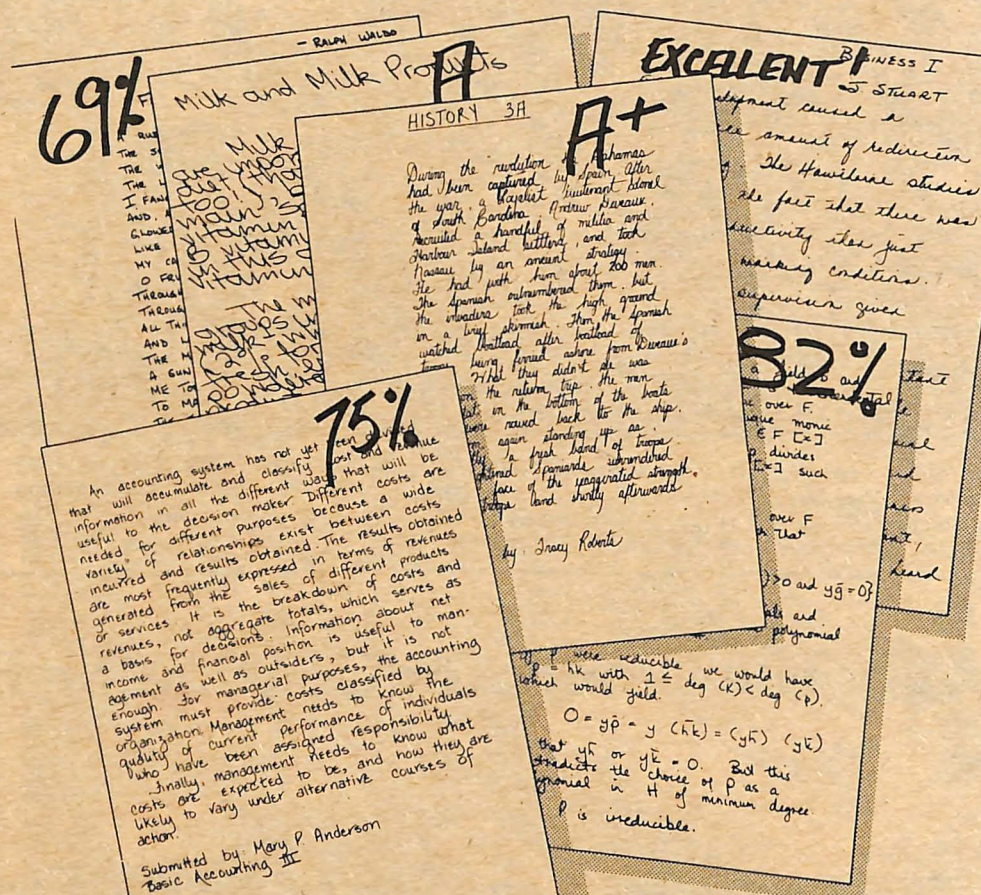 — RALPH WALDO
69%
F
A RUS
THE S
THE
THE L
I FAN
AND, A
GLOWE
LIKE
MY CA
O FRU
THROUGH
THROUG
ALL TH
AND
THE M
A GUN
ME TO
TO MA
Milk and Milk Products
A
Milk
are impo
diet. Th
too! ha
main,
B vitamin
vitam
in this
vitamin
The m
ng
groups
HISTORY 3A
A+
During the revolution Bahamas
had been captured by Spain. After
the war, a loyalist lieutenant colonel
of South Carolina Andrew Deveaux
recruited a handful of militia and
Harbour Island settlers, and took
Nassau by an ancient strategy.
He had with him about 200 men.
The Spanish outnumbered them, but
the invaders took the high ground
in a brief skirmish. Then the Spanish
watched boatload after boatload of
troops being ferried ashore from Deveaux's
What they didn't see was
on the return trip. The men
at in the bottom of the boats
were rowed back to the ship.
again standing up as
ly a fresh band of troops.
Spaniards surrendered
face of the exaggerated strength
troops land shortly afterwards
by: Tracy Roberts
EXCELLENT!
BUSINESS I
J STUART
lopment caused a
amount of redirection
The Hawthorne studies
the fact that there was
uctivity than just
working conditions.
supervision given
82%
a field and
over F.
que monic
E F [x]
p divides
[x] such
over F
that
) >0 and yḡ = 0}
als and
polynomial
tant
heard
If P were reducible we would have
P = hk with 1 ≤ deg (k) < deg (p).
which would yield.
0 = yp̄ = y (h̄k̄) = (yh̄) (yk̄)
that yh̄ or yk̄ = 0. But this
tradicts the choice of P as a
ynomial in H of minimum degree.
P is irreducible.
75%
An accounting system has not yet been devised
that will accumulate and classify cost and revenue
information in all the different ways that will be
useful to the decision maker. Different costs are
needed for different purposes because a wide
variety of relationships exist between costs
incurred and results obtained. The results obtained
are most frequently expressed in terms of revenues
generated from the sales of different products
or services. It is the breakdown of costs and
revenues, not aggregate totals, which serves as
a basis for decisions. Information about net
income and financial position is useful to man-
agement as well as outsiders, but it is not
enough. For managerial purposes, the accounting
system must provide costs classified by
organization. Management needs to know the
quality of current performance of individuals
who have been assigned responsibility.
Finally, management needs to know what
costs are expected to be, and how they are
likely to vary under alternative courses of
action.
Submitted by: Mary P. Anderson
Basic Accounting III